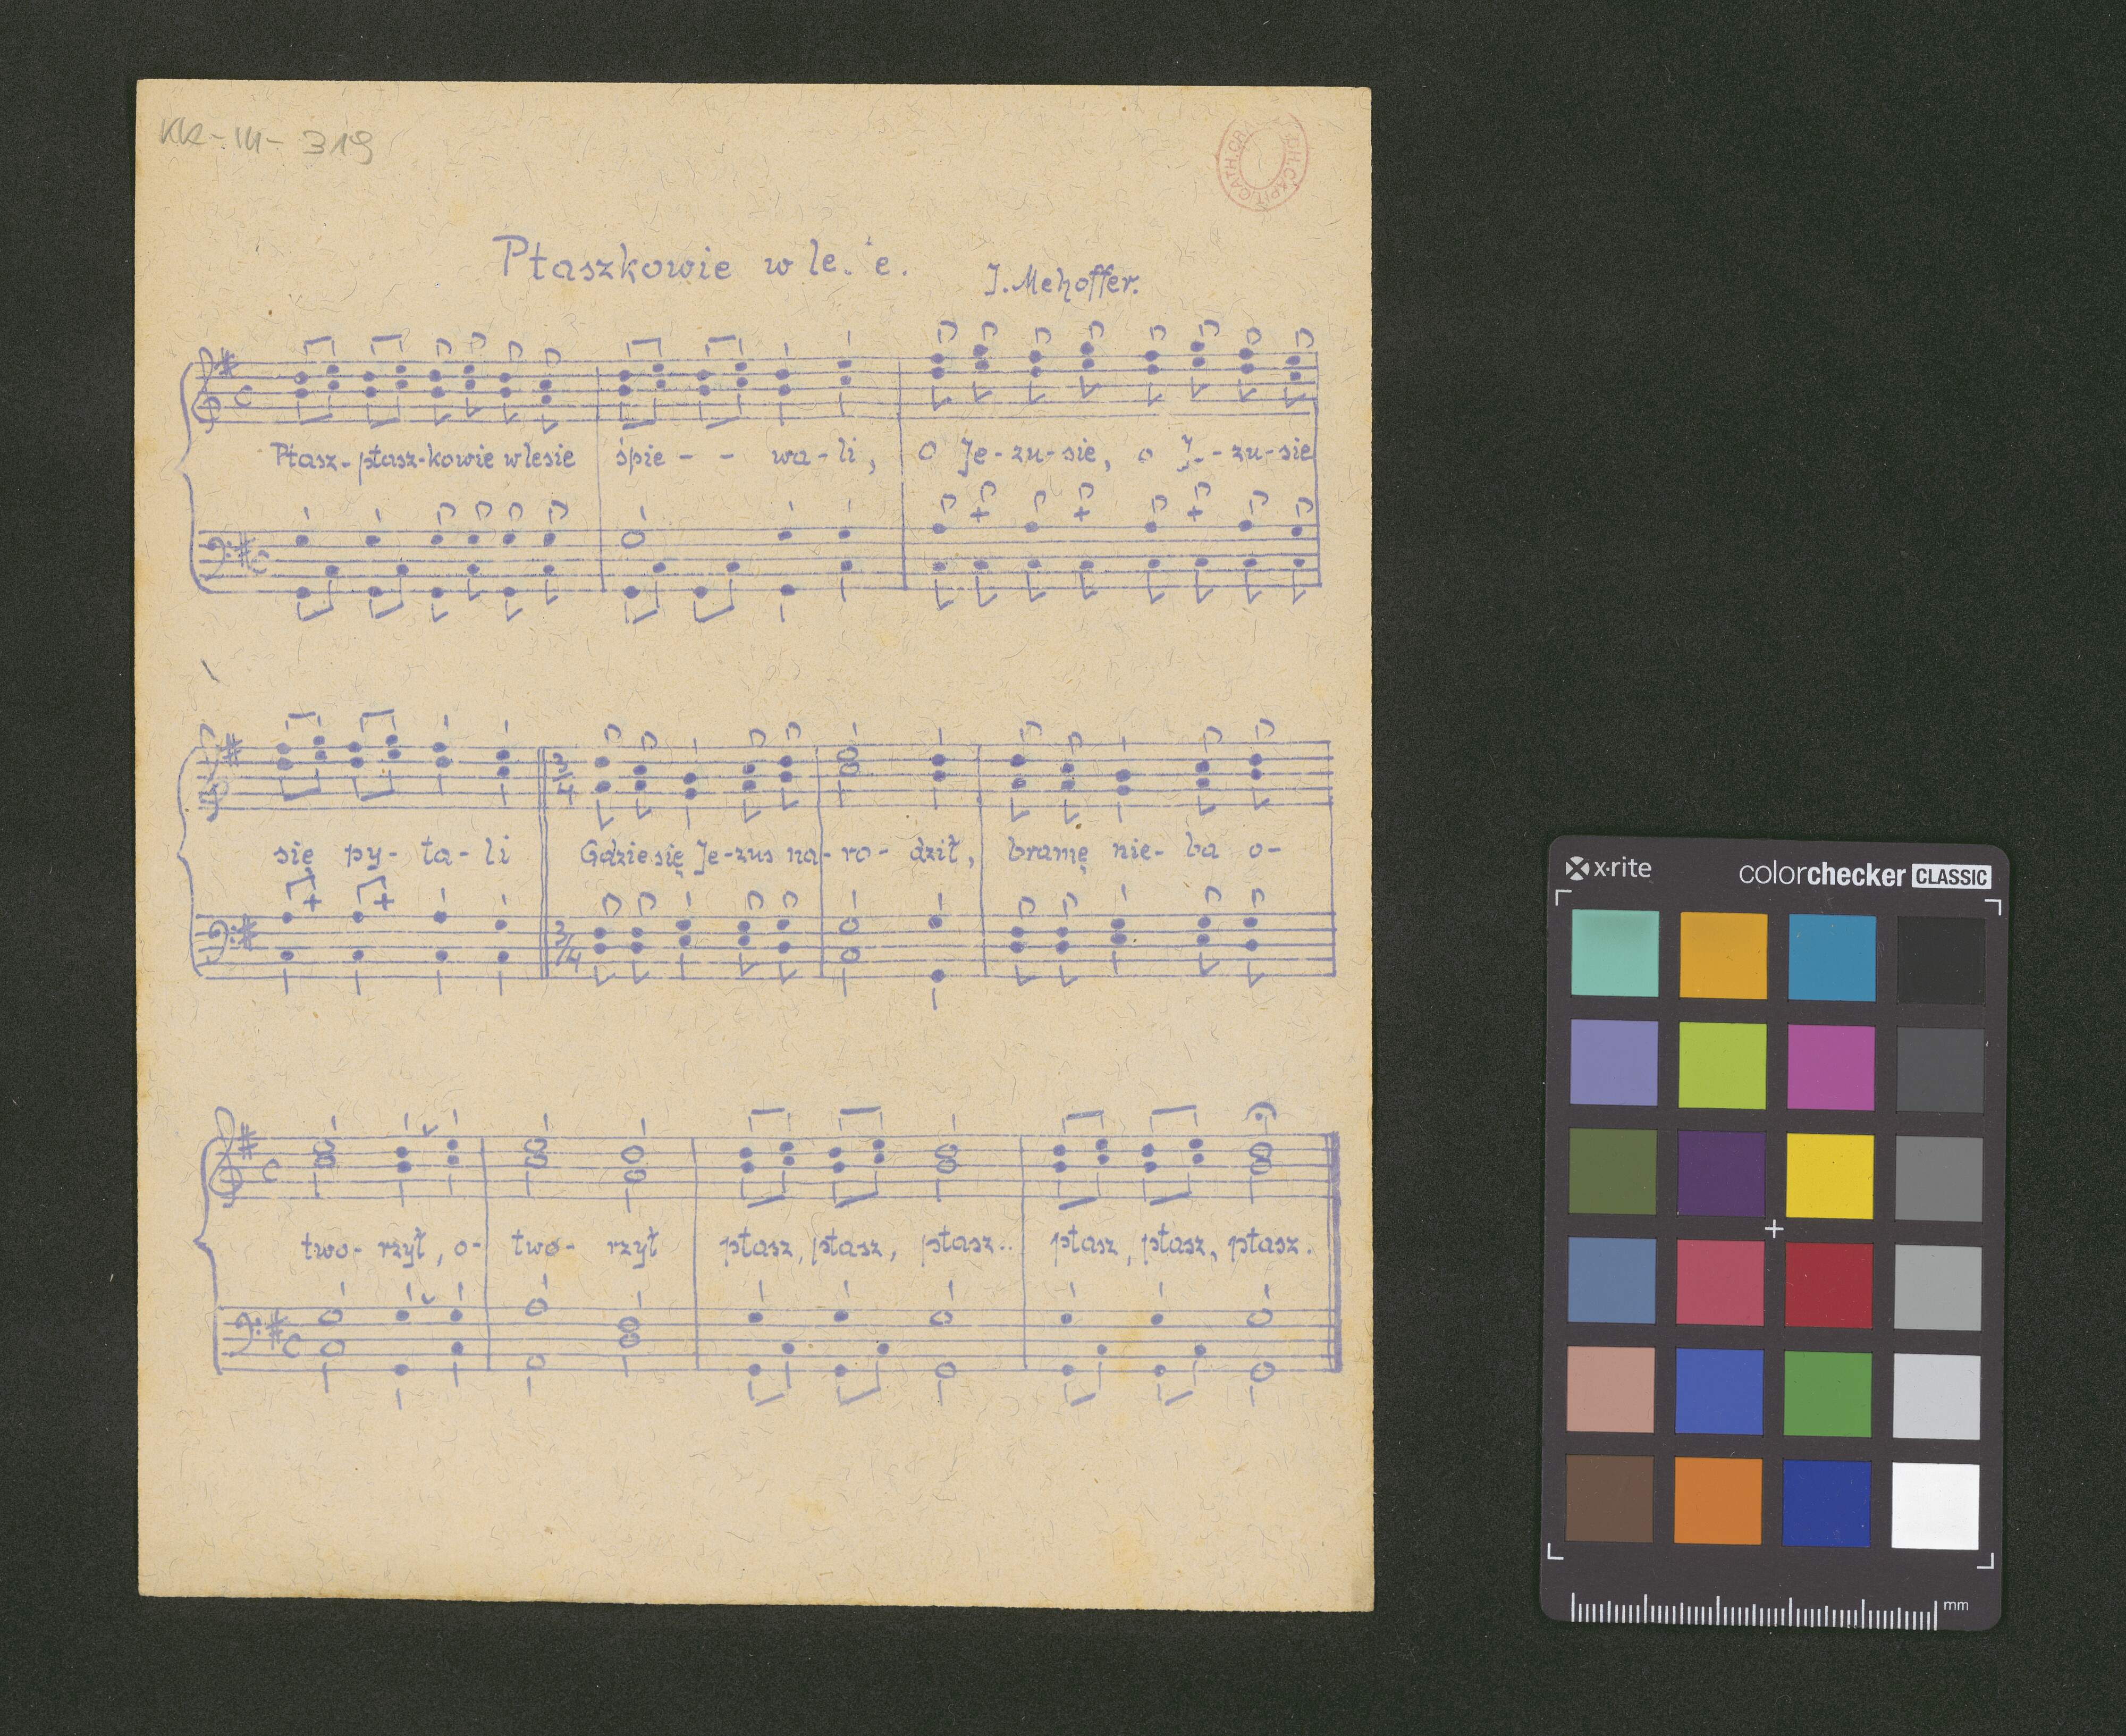 KK-III-319
Ptaszkowie w le. e.
J. Mehoffer.
Ptasz-ptasz-kowie w lesie śpie - - wa-li, O Je-zu-sie, o J - -zu-sie
się py-ta-li Gdzie się Je-zus na-ro-dził, bramę nie-ba o-
3/4
3/4
two-rzył, o- two-rzył ptasz, ptasz, ptasz.. ptasz, ptasz, ptasz.
x·rite colorchecker CLASSIC
mm